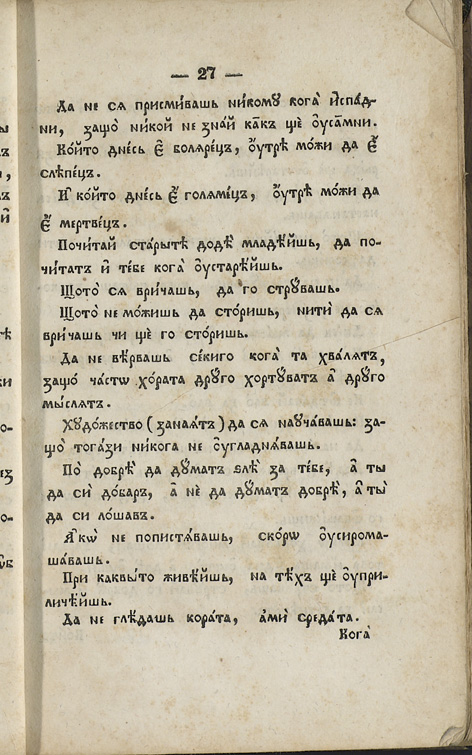 — 27 —
Да не ся присми́вашь ни́кому кога̀ и҆спа́д-
ни, защо̀ ни́кой не зна́й ка́къ ще ᲂу҆са́мни.
Ко́йто дне́сь є҆̀ боляре́цъ, ᲂу҆́трѣ мо́жи да є҆̀
слѣпе́цъ.
И҆ ко́йто дне́сь є҆̀ голяме́цъ, ᲂу҆́трѣ мо́жи да
є҆̀ мертве́цъ.
Почи́тай ста́рытѣ додѐ младѣ́йшь, да по-
чи́татъ и҆ те́бе кога̀ ᲂу҆старѣ́йшь.
Що́то ся ври́чашь, да го стрꙋ́вашь.
Що́то не мо́жишь да сто́ришь, нитѝ да ся
ври́чашь чи ще го сто́ришь.
Да не вѣ́рвашь се́киго кога̀ та хва́лятъ,
защо̀ ча́стѡ хо́рата дрꙋ́го хортꙋ́ватъ а҆̀ дрꙋ́го
мы́слятъ.
Хꙋдо́жество (заная́тъ) да ся наꙋча́вашь: за-
що̀ тога́зи ни́кога не ᲂу҆гладня́вашь.
По̀ добрѣ̀ да дꙋ́матъ ѕлѐ за те́бе, а҆̀ ты
да сѝ до́баръ, а҆̀ нѐ да дꙋ́матъ добрѣ̀, а҆̀ ты̀
да си ло́шавъ.
А҆́кѡ не попистя́вашь, ско́рѡ ᲂу҆сирома-
ша́вашь.
При каквы́то живѣ́йшь, на тѣ́хъ ще ᲂу҆при-
личѣ́йшь.
Да не глѣ́дашь кора́та, а҆мѝ среда́та.
Кога̀